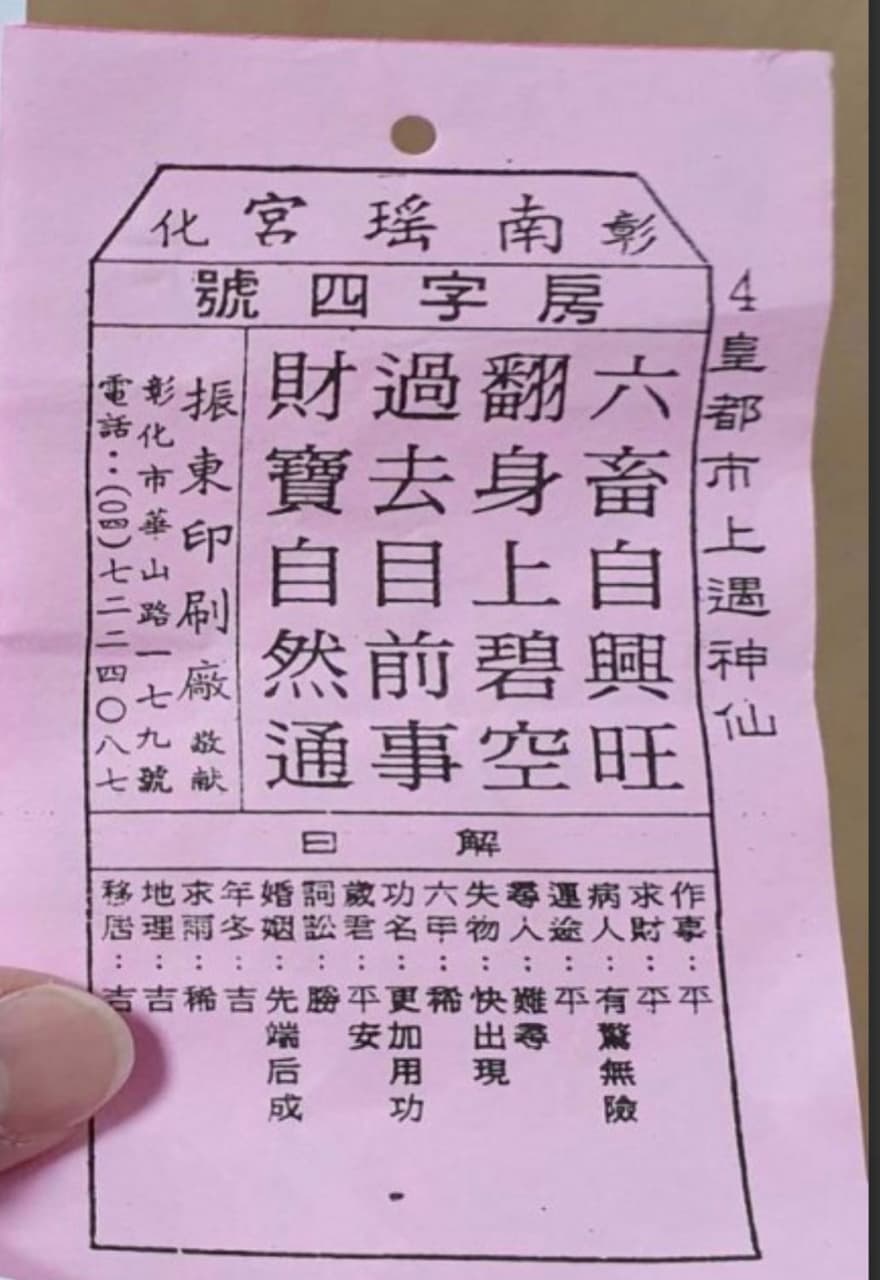 彰化南瑤宮
房字四號
4皇都市上遇神仙
六畜自興旺
翻身上碧空
過去目前事
財寶自然通
振東印刷廠敬献
彰化市華山路一七九號
電話：(〇四)七二二四〇八七
解曰
作事：平
求財：平
病人：有驚無險
運途：平
尋人：難尋
失物：快出現
六甲：稀
功名：更加用功
歲君：平安
詞訟：勝
婚姻：先端后成
年冬：吉
求雨：稀
地理：吉
移居：吉